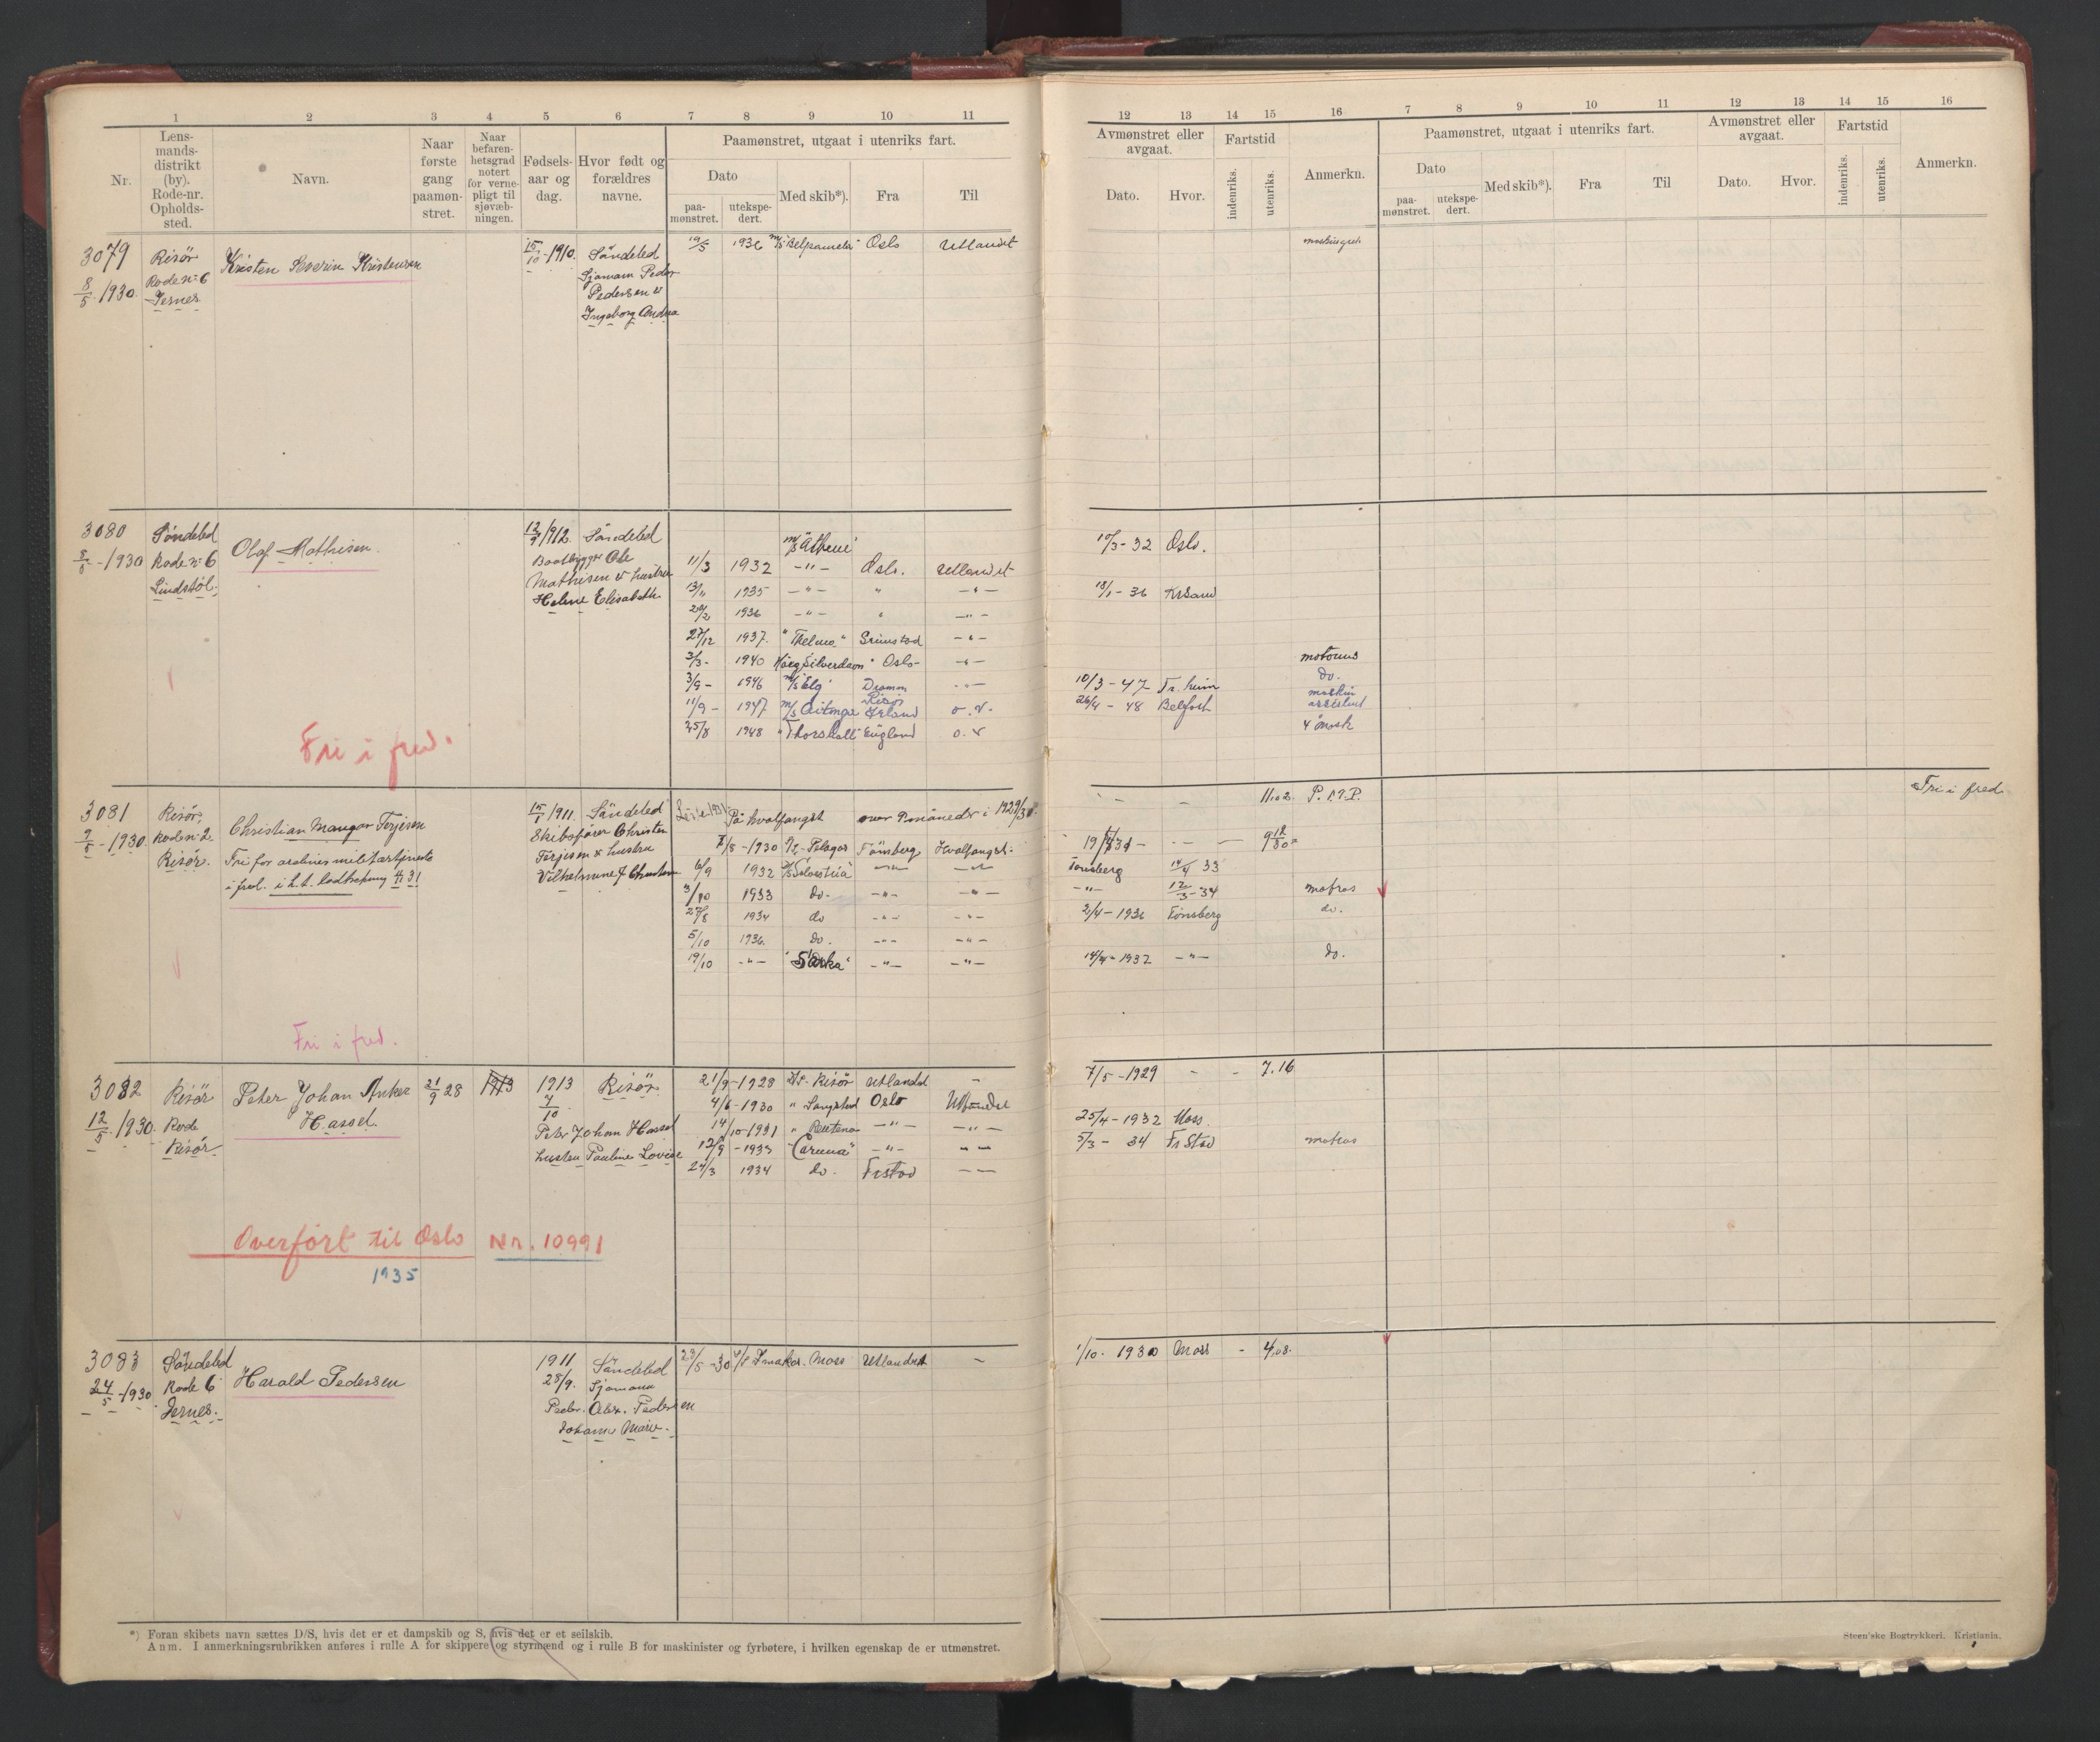 1 2 3 4 5 6 7 8 9 10 11
Nr.
Lens-
mands-
distrikt
(by).
Rode-nr.
Opholds-
sted.
Navn.
Naar
første
gang
paamøn-
stret.
Naar
befaren-
hetsgrad
notert
for verne-
pligt til
sjøvæb-
ningen.
Fødsels-
aar og
dag.
Hvor født og
forældres
navne.
Paamønstret, utgaat i utenriks fart.
Dato
paa-
mønstret.
utekspe-
dert.
Med skib*).
Fra
Til
12 13 14 15 16 7 8 9 10 11 12 13 14 15 16
Avmønstret eller
avgaat.
Dato.
Hvor.
Fartstid
indenriks.
utenriks.
Anmerkn.
Paamønstret, utgaat i utenriks fart.
Dato
paa-
mønstret.
utekspe-
dert.
Med skib*).
Fra
Til
Avmønstret eller
avgaat.
Dato.
Hvor.
Fartstid
indenriks.
utenriks.
Anmerkn.
3079
8/5 1930.
Risör
Rode nr 6
Jernes
Kristen Severin Kristensen
15/10-1910.
Söndeled
Sjømann Peder
Pedersen &
Ingeborg Andrea
19/5 1936 Oslo Utlandet
3080
8/5-1930
Söndeled
Rode nr 6
Lindstøl.
Olaf Mathisen.
12/9 1912. Söndeled
Baatbygger Ole
Mathisen & hustru
Helene Elisabeth.
M/S Athene
11/3 1932 -"- Oslo. Utlandet
13/11 1935 -"- " -"-
20/2 1936 -"- " -"-
27/12 1937. "Thelma" Grimstad -"-
3/3- 1940 Höegh Silverdawn" Oslo- -"-
3/9- 1946 M/S Elg Dramm -"-
Risør
11/9- 1947 M/S Irland o.v.
25/8 1948 "Thorshall" England o.v
10/3-32 Oslo.
18/1-36 KrSand
motorms
10/3-47 Fr.heim do.
maskin
26/4-48 Belfast assistent
4 mask
Fri i fred.
3081
9/5-1930
Risör,
Rode nr 2
Risör.
Christian Mangor Terjesen
Fri for militærtjeneste
i fred.
15/1 1911. Söndeled
Skibsfører Christen
Terjesen & hustru
Vilhelmine
På hvalfangst over måneder i 1929/30.
7/8-1930 Pelagos Tönsberg Hvalfangst.
6/9 1932 -"- -"-
3/10 1933 do. -"- -"-
27/8 1934 do -"- -"-
5/10 1936. do. -"- -"-
19/10 -"- -"- -"-
11.02. P.
Fri i fred.
Tönsberg 14/4 33
-"- 12/3-34 matros
2/4-1936 Tönsberg do.
14/4-1937 -"- do.
Fri i fred.
3082
12/5-1930.
Risör
Rode
Risör.
Peter Johan Anker
Hassel.
21/9 28
1913
1913
7/10
Risör.
Peter Johan Hassel
hustru Pauline Lovise
21/9-1928 Risör Utlandet -
4/6-1930 " Oslo Utlandet
14/10-1931 " -"- -"-
12/9-1933 "Caruna" -"- -"-
24/3 1934 do. Frstad -"-
7/5-1929 - - 7.16
25/4-1932 Moss.
5/3-34 FrStad matros
Overfört til Oslo Nr. 10991
1935
3083
24/5-1930.
Söndeled
Rode 6
Jernes.
Harald Pedersen
1911
28/9.
Söndeled
Sjømann
Peder Alex. Pedersen
Johanne Marie.
23/5-30 Moss Utlandet -
1/10. 1930 Moss - 4.08.
*) Foran skibets navn sættes D/S, hvis det er et dampskib og S, hvis det er et seilskib.
Anm. I anmerkningsrubrikken anføres i rulle A for skippere og styrmænd og i rulle B for maskinister og fyrbøtere, i hvilken egenskap de er utmønstret.
Steen'ske Bogtrykkeri. Kristiania.